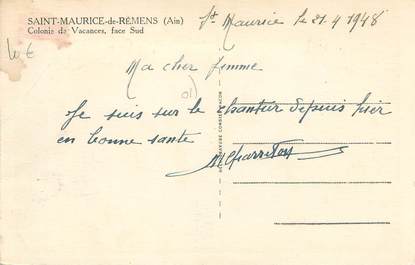 SAINT-MAURICE-de-RÉMENS (Ain)
Colonie de Vacances, face Sud
St Maurice le 21.4 1948
Ma cher femme
01
Je suis sur le chantier depuis hier
en bonne sante